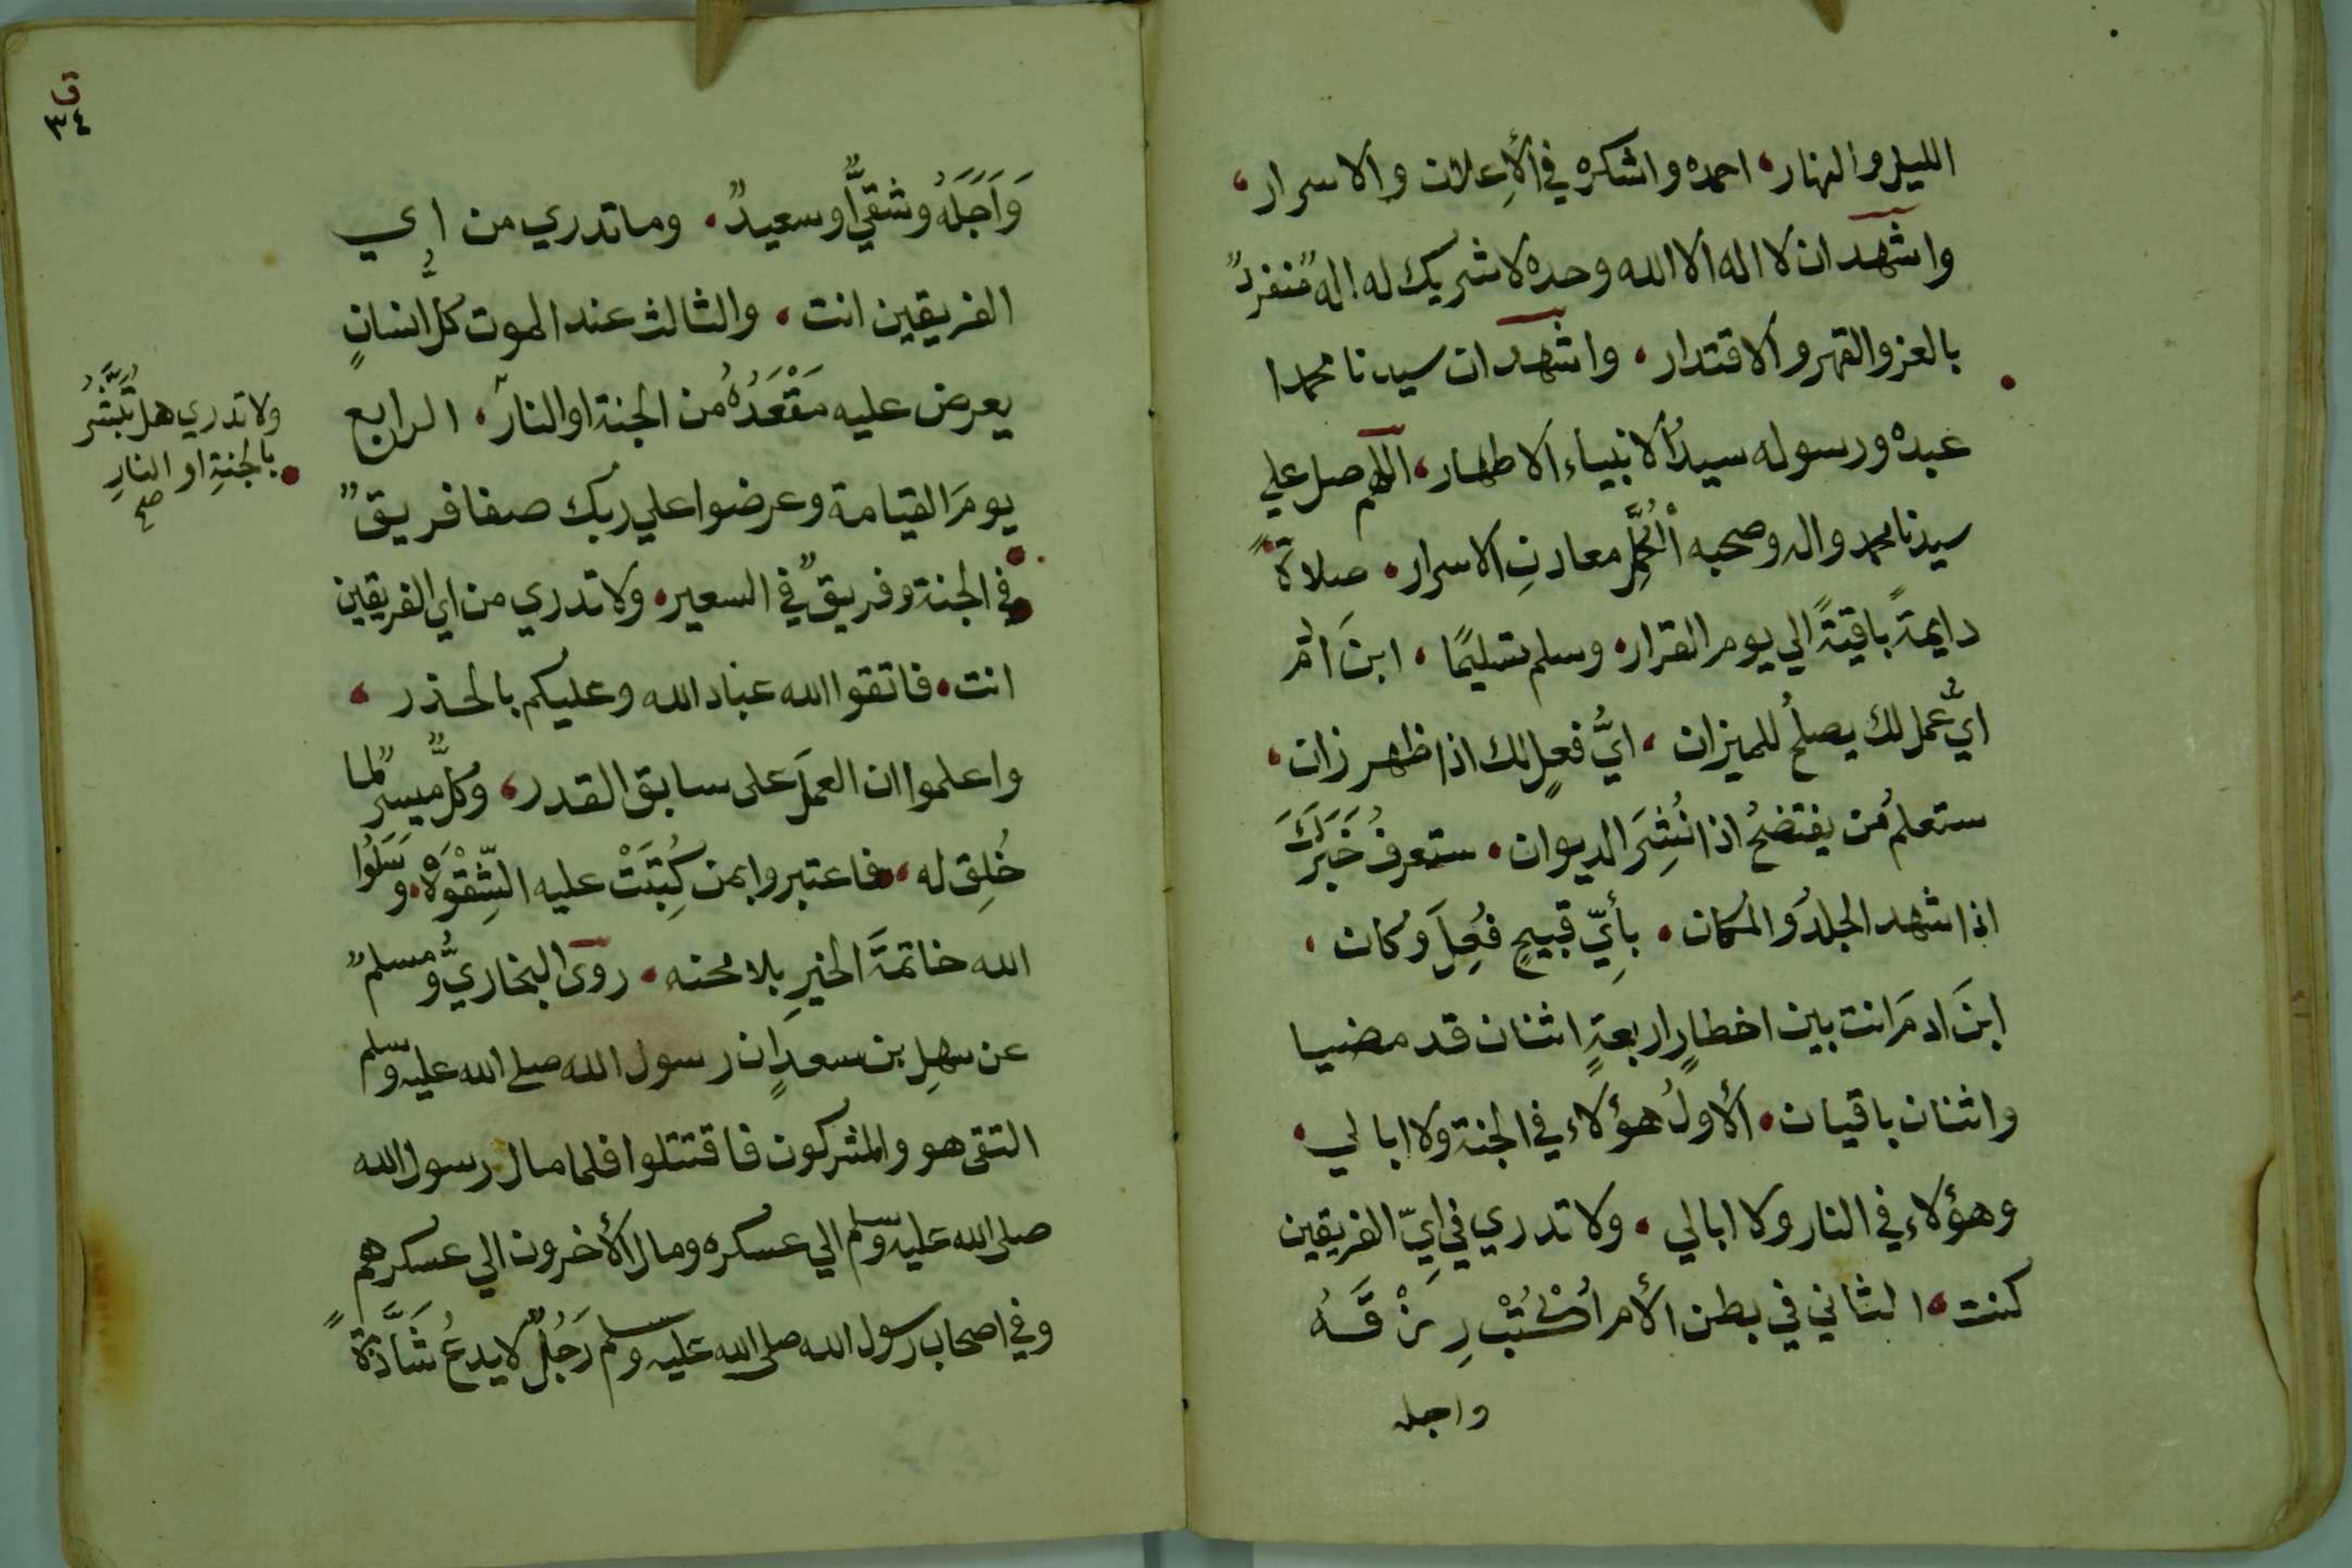 الليل والنهار، احمده واشكره في الأعلان والاسرار،
واشهد ان لا اله الا الله وحده لا شريك له اله منفرد
بالعز والقهر والاقتدار، واشهد ان سيدنا محمدا
عبده ورسوله سيد الانبياء الاطهار، اللهم صل علي
سيدنا محمد واله وصحبه الكُمَّلِ معادنِ الاسرار، صلاةً
دايمةً باقيةً الي يوم القرار، وسلم تسليمًا، ابنَ ادم
ايُّ عمل لك يصلحُ للميزان، ايُّ فعلٍ لك اذا ظهر زان،
ستعلم من يفتضحُ اذا نُشِرَ الديوان، ستعرفُ خَبَرَكَ
اذا شهد الجلدُ والمكان، بأيِّ قبيحٍ فُعِلَ وكان،
ابنَ ادمَ انت بين اخطارٍ اربعةٍ اثنان قد مضيا
واثنان باقيان، الأولُ هؤلاء في الجنة ولا ابالي،
وهؤلاء في النار ولا ابالي، ولا تدري في ايِّ الفريقين
كنت، الثاني في بطن الأم اكْتُبْ رِزْقَهُ
واجله
قا
٣٤
وَاَجَلَهُ وشقيٌّ او سعيدٌ، وما تدري من اي
الفريقين انت، والثالث عند الموت كلُّ انسانٍ
يعرض عليه مَقْعَدُهُ من الجنة او النار، الرابع
يومَ القيامة وعرضوا علي ربك صفا فريقٌ
في الجنة وفريقٌ في السعير، ولا تدري من اي الفريقين
انت، فاتقوا الله عباد الله وعليكم بالحذر،
واعلموا ان العملَ على سابق القدر، وكلٌّ ميسرٌ لما
خُلِقَ له، فاعتبروا بمن كُتِبَتْ عليه الشِّقْوَة، وسَلُوا
الله خاتمةَ الخيرِ بلا محنه، روى البخاريُّ ومسلمٌ
عن سهلِ بن سعدٍ ان رسول الله صلى الله عليه وسلم
التقى هو والمشركون فاقتتلوا فلما مال رسول الله
صلى الله عليه وسلم الي عسكره ومال الأخرون الي عسكرهم
وفي اصحاب رسول الله صلى الله عليه وسلم رَجُلٌ لا يدعُ شَاذَّةً
ولا تدري هل تُبَشَّرُ
بالجنةِ او النارِ
صح